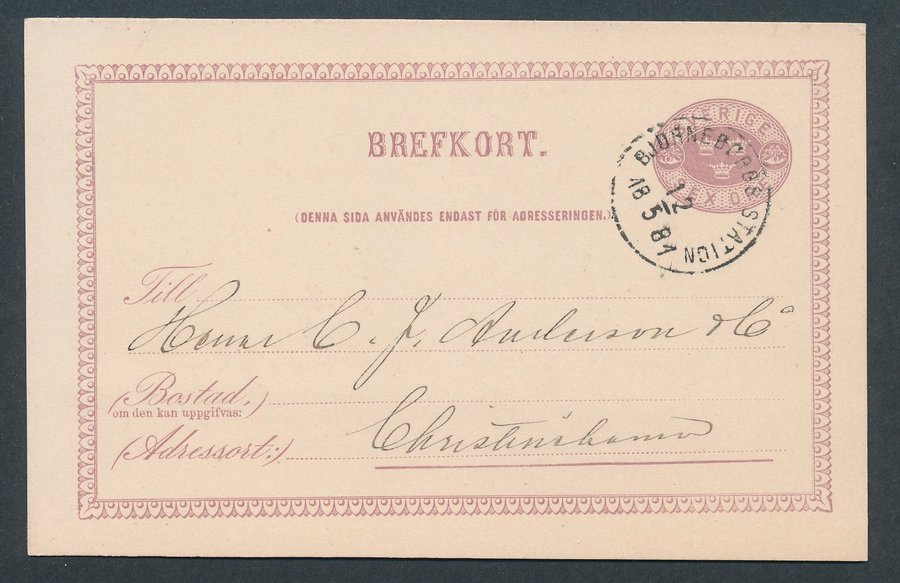 BREFKORT.
SVERIGE
SEX ÖRE
BJÖRNEBORGS STATION
12
18 5 81
(DENNA SIDA ANVÄNDES ENDAST FÖR ADRESSERINGEN.)
Till
Herrar C. J. Anderson & Co
(Bostad,)
om den kan uppgifvas:
(Adressort:)
Christinehamn